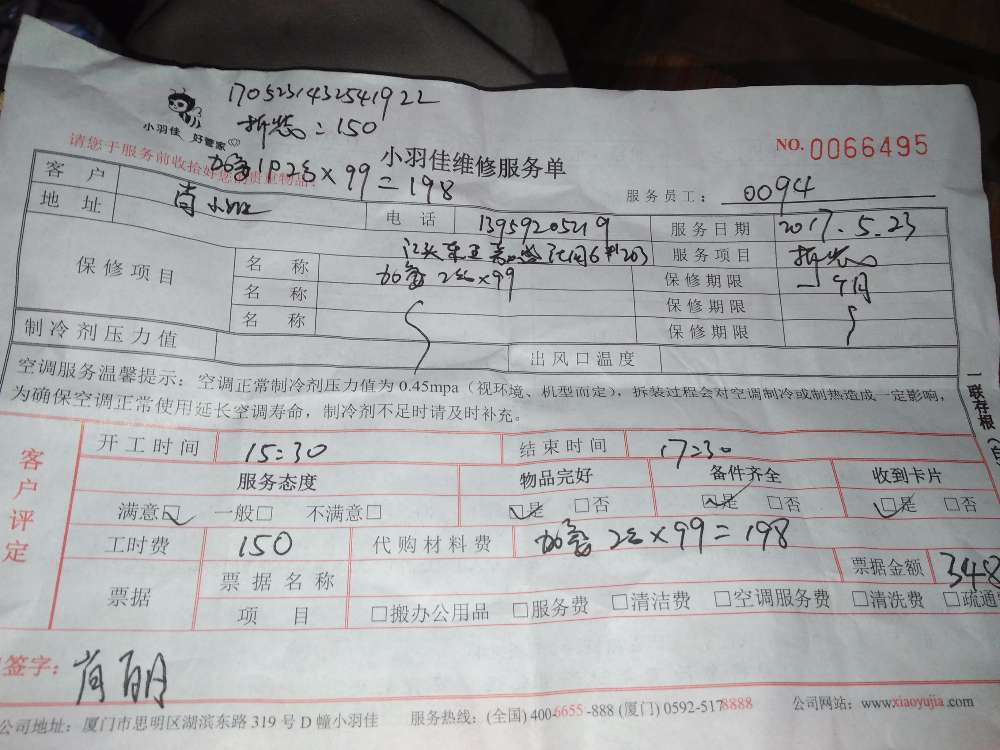 1705231432541922
小羽佳 好管家
拆装:150
请您于服务前收拾好您的贵重物品!
小羽佳维修服务单
NO. 0066495
2台×99=198
服务员工: 0094
客户 肖小姐 电话 13959205219 服务日期 2017.5.23
地址 服务项目 拆装
保修项目 名称 2台×99 保修期限 一个月
名称 保修期限
名称 保修期限
制冷剂压力值 出风口温度
空调服务温馨提示:空调正常制冷剂压力值为0.45mpa(视环境、机型而定),拆装过程会对空调制冷或制热造成一定影响,
为确保空调正常使用延长空调寿命,制冷剂不足时请及时补充。
一联存根
客户评定
开工时间 15:30 结束时间 17:30
服务态度 物品完好 备件齐全 收到卡片
满意☑ 一般□ 不满意□ ☑是 □否 ☑是 □否 ☑是 □否
工时费 150 代购材料费 2台×99=198
票据 票据名称 票据金额 348
项目 □搬办公用品 □服务费 □清洁费 □空调服务费 □清洗费 □疏通
签字: 肖
公司地址:厦门市思明区湖滨东路319号D幢小羽佳 服务热线:(全国)400-6655-888 (厦门)0592-5178888 公司网站:www.xiaoyujia.com